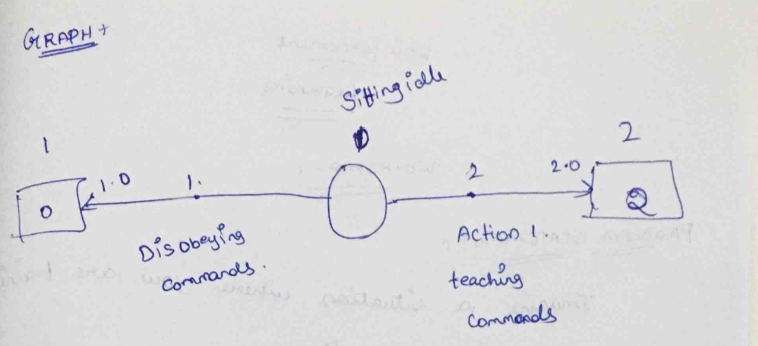 GRAPH
Sitting idle
1
0
2
1.0
1.
2
2.0
0
2
Disobeying
commands.
Action 1.
teaching
commands